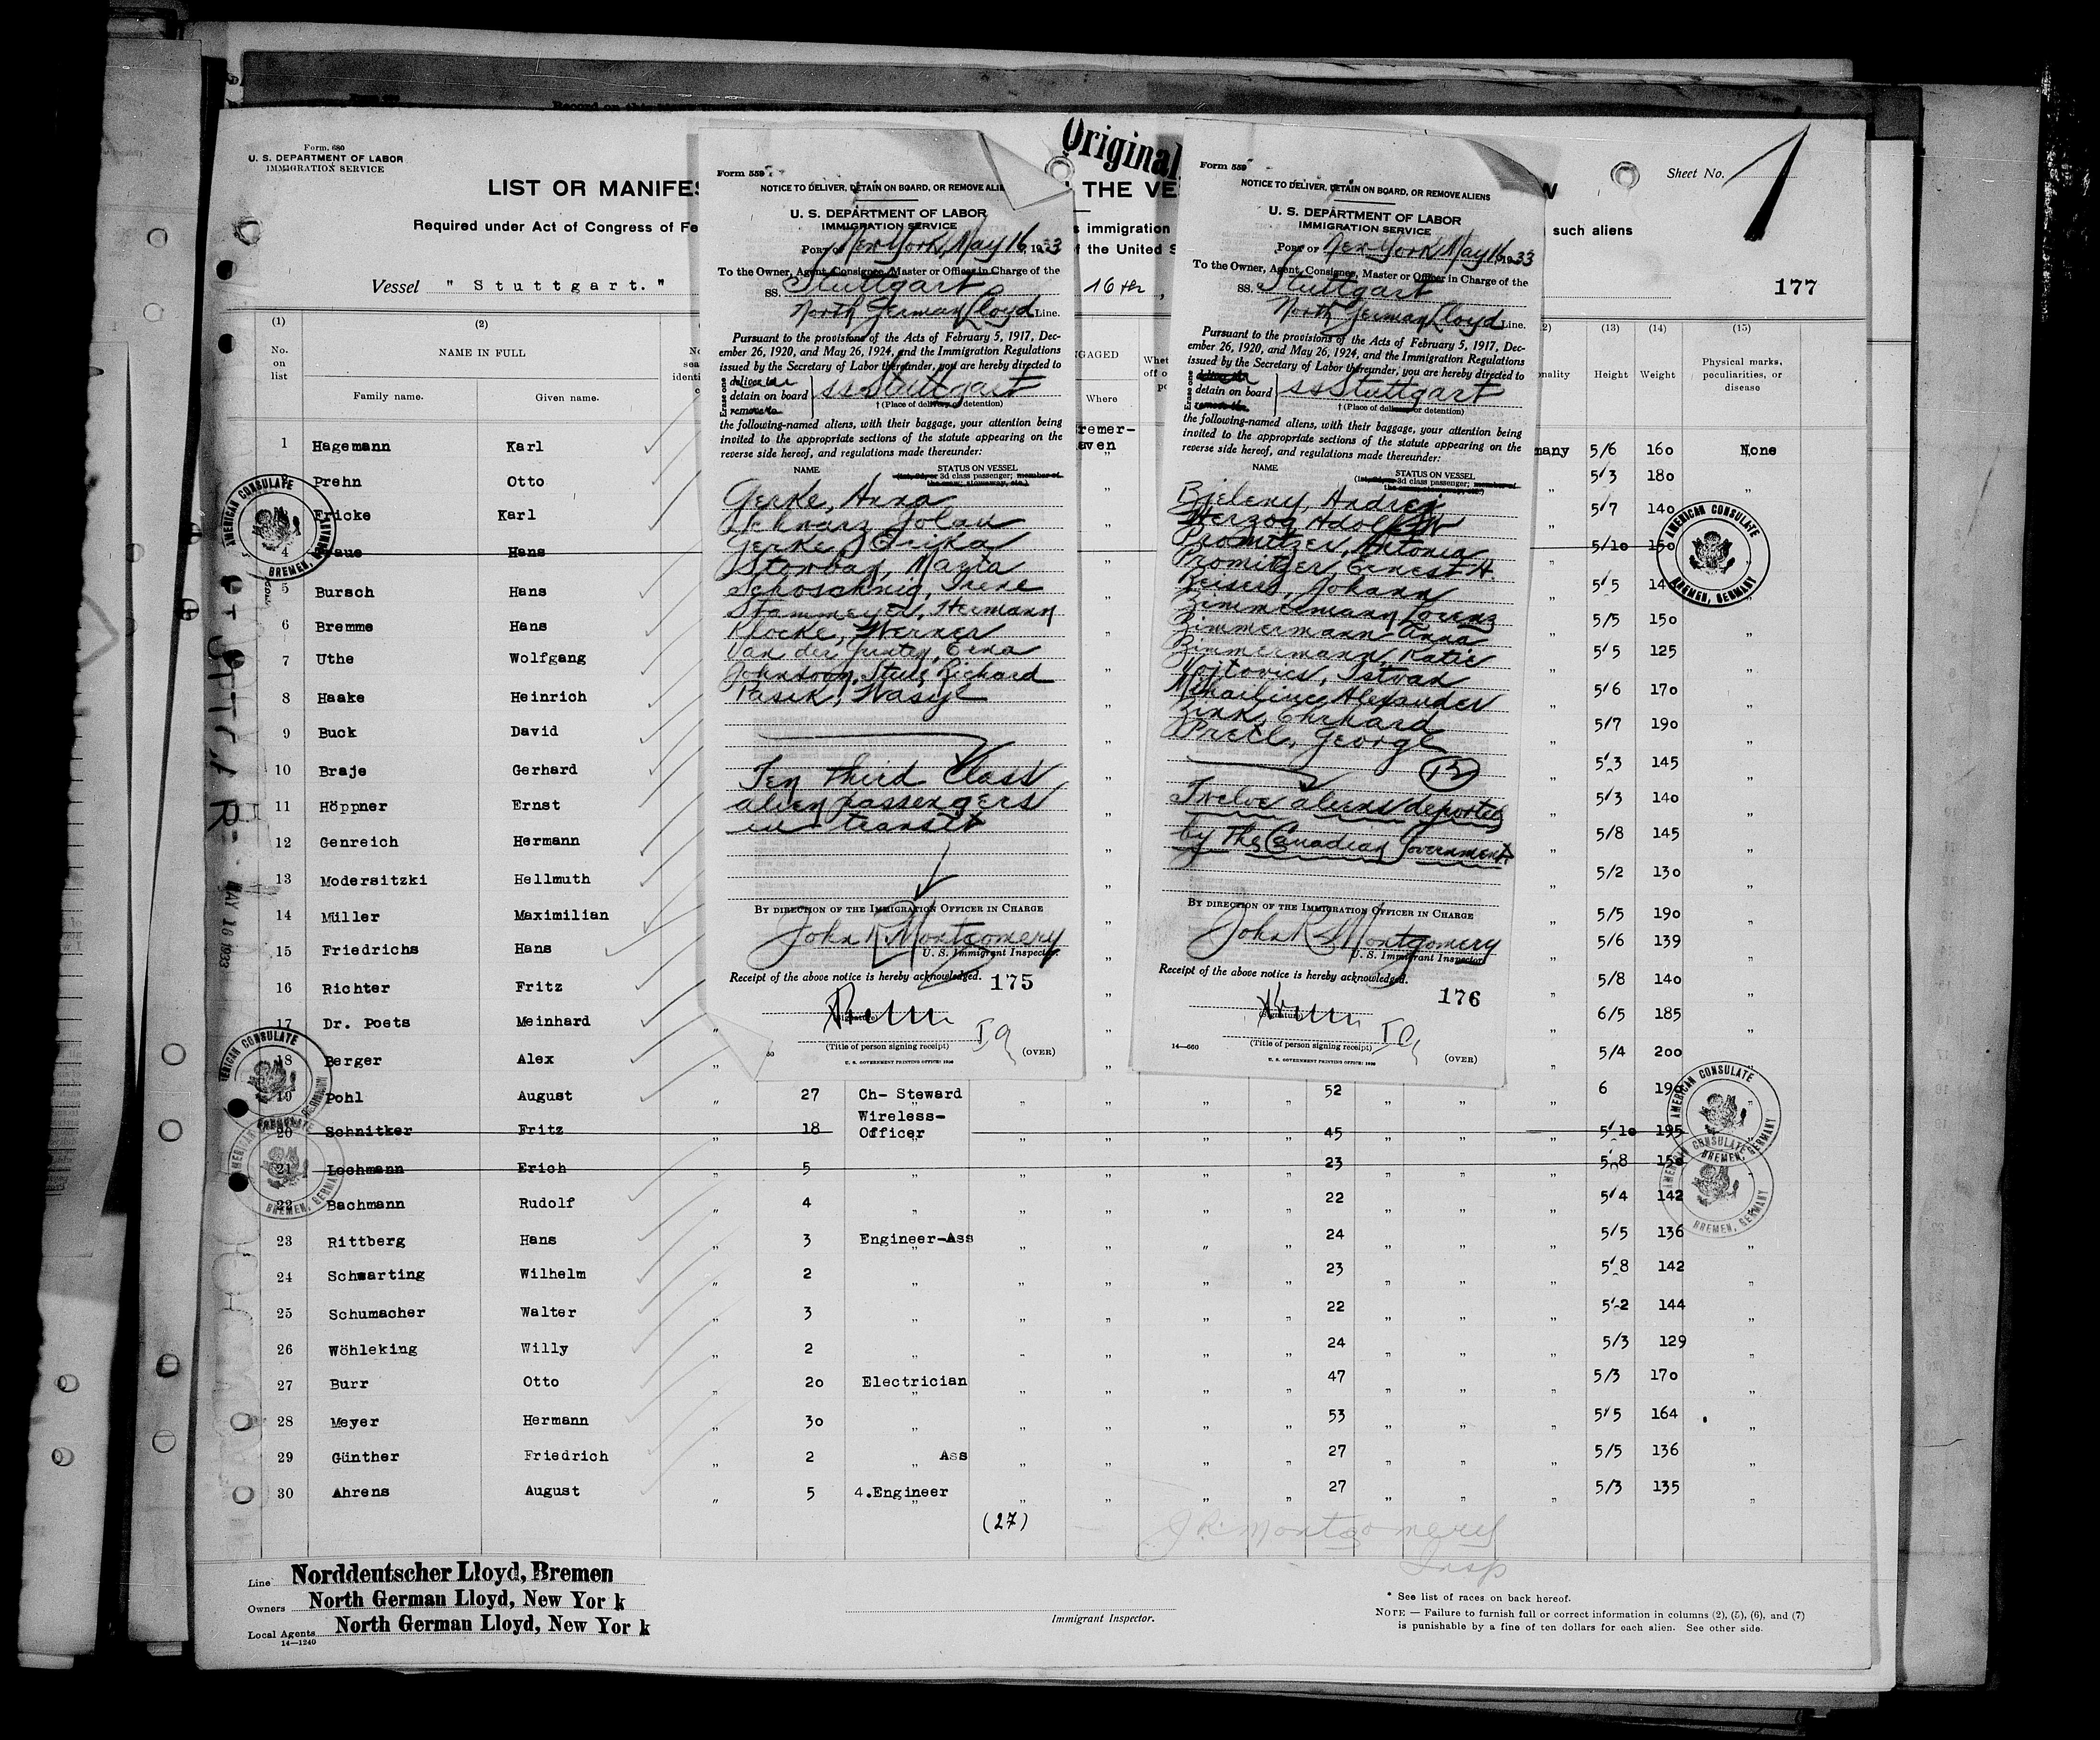 Form 680
U. S. DEPARTMENT OF LABOR
IMMIGRATION SERVICE
Original
Sheet No. 1
LIST OR MANIFES
THE VE
Required under Act of Congress of Fe
s immigration
such aliens
f the United S
Vessel " Stuttgart. "
16th,
177
(1) (2) (13) (14) (15)
No. on list
NAME IN FULL
Family name. Given name.
GAGED
Where
Height Weight
Physical marks, peculiarities, or disease
remer-
aven
1 Hagemann Karl many 5/6 160 None
Prehn Otto " 5/3 180 "
Fricke Karl " 5/7 140
4 Hans " 5/10 150
5 Bursch Hans " 5/5 14 "
6 Bremme Hans " 5/5 150 "
7 Uthe Wolfgang " 5/5 125 "
8 Haake Heinrich " 5/6 170 "
9 Buck David " 5/7 190 "
10 Braje Gerhard " 5/3 145 "
11 Höppner Ernst " 5/3 140 "
12 Genreich Hermann " 5/8 145 "
13 Modersitzki Hellmuth " 5/2 130 "
14 Müller Maximilian " 5/5 190 "
15 Friedrichs Hans " 5/6 139 "
16 Richter Fritz " 5/8 140 "
17 Dr. Poets Meinhard " 6/5 185 "
18 Berger Alex " 5/4 200 "
19 Pohl August " 27 Ch- Steward " " " " 52 " " " 6 190 "
20 Schnitker Fritz " 18 Wireless-Officer " " " " 45 " " " 5/10 195
21 Lochmann Erich " 5 " " " " " 23 " " " 5/8 150
22 Bachmann Rudolf " 4 " " " " " 22 " " " 5/4 142
23 Rittberg Hans " 3 Engineer-Ass " " " " 24 " " " 5/5 136 "
24 Schwarting Wilhelm " 2 " " " " " 23 " " " 5/8 142 "
25 Schumacher Walter " 3 " " " " " 22 " " " 5/2 144 "
26 Wöhleking Willy " 2 " " " " " 24 " " " 5/3 129 "
27 Burr Otto " 20 Electrician " " " " 47 " " " 5/3 170 "
28 Meyer Hermann " 30 " " " " " 53 " " " 5/5 164 "
29 Günther Friedrich " 2 " Ass " " " " 27 " " " 5/5 136 "
30 Ahrens August " 5 4.Engineer " " " " 27 " " " 5/3 135 "
(27)
J R Montgomery
Insp
Line Norddeutscher Lloyd, Bremen
Owners North German Lloyd, New York
Local Agents North German Lloyd, New York
14—1240
Immigrant Inspector.
* See list of races on back hereof.
NOTE — Failure to furnish full or correct information in columns (2), (5), (6), and (7)
is punishable by a fine of ten dollars for each alien. See other side.
Form 559
NOTICE TO DELIVER, DETAIN ON BOARD, OR REMOVE ALIE
U. S. DEPARTMENT OF LABOR
IMMIGRATION SERVICE
PORT OF New York, May 16, 1933
To the Owner, Agent, Consignee, Master or Officer in Charge of the
SS. Stuttgart
North German Lloyd Line.
Pursuant to the provisions of the Acts of February 5, 1917, Dec-
ember 26, 1920, and May 26, 1924, and the Immigration Regulations
issued by the Secretary of Labor thereunder, you are hereby directed to
Erase one
deliver to
detain on board
remove to
ss Stuttgart
† (Place of delivery or detention)
the following-named aliens, with their baggage, your attention being
invited to the appropriate sections of the statute appearing on the
reverse side hereof, and regulations made thereunder:
NAME STATUS ON VESSEL
(1st, 2d, or 3d class passenger; member of the crew; stowaway, etc.)
Gerke, Anna
Schwarz Jolan
Gerke, Erika
Storbay, Marta
Schoschnig, Irene
Stammeyer, Hermann
Klocke, Werner
Van der Gunten, Erna
Johnsson, Sture Richard
Pasik, Wasyl
Ten third Class
alien passengers
in transit
BY DIRECTION OF THE IMMIGRATION OFFICER IN CHARGE
John R Montgomery
U. S. Immigrant Inspector.
Receipt of the above notice is hereby acknowledged. 175
(Signature)
(Title of person signing receipt)
(OVER)
U. S. GOVERNMENT PRINTING OFFICE: 1930
Form 559
NOTICE TO DELIVER, DETAIN ON BOARD, OR REMOVE ALIENS
U. S. DEPARTMENT OF LABOR
IMMIGRATION SERVICE
PORT OF New York May 16 1933
To the Owner, Agent, Consignee, Master or Officer in Charge of the
SS. Stuttgart
North German Lloyd Line.
Pursuant to the provisions of the Acts of February 5, 1917, Dec-
ember 26, 1920, and May 26, 1924, and the Immigration Regulations
issued by the Secretary of Labor thereunder, you are hereby directed to
Erase one
detain on board
ss Stuttgart
† (Place of delivery or detention)
the following-named aliens, with their baggage, your attention being
invited to the appropriate sections of the statute appearing on the
reverse side hereof, and regulations made thereunder:
NAME STATUS ON VESSEL
(1st, 2d, or 3d class passenger; member of the crew; stowaway, etc.)
Bieleny, Andrej
Herzog Adolf
Promitzer, Antonia
Promitzer, Ernest H.
Reiser, Johann
Zimmermann Lorenz
Zimmermann Anna
Zimmermann, Katie
Vojtovics, Istvan
Mihailiuc Alexander
Zink, Ehrhard
Pretl, George
(12)
Twelve aliens deported
by The Canadian Government
BY DIRECTION OF THE IMMIGRATION OFFICER IN CHARGE
John R Montgomery
U. S. Immigrant Inspector
Receipt of the above notice is hereby acknowledged.
176
(Signature)
(Title of person signing receipt)
14—660
(OVER)
U. S. GOVERNMENT PRINTING OFFICE: 1930
AMERICAN CONSULATE
BREMEN, GERMANY
AMERICAN CONSULATE
BREMEN, GERMANY
AMERICAN CONSULATE
BREMEN, GERMANY
AMERICAN CONSULATE
BREMEN, GERMANY
MAY 16 1933